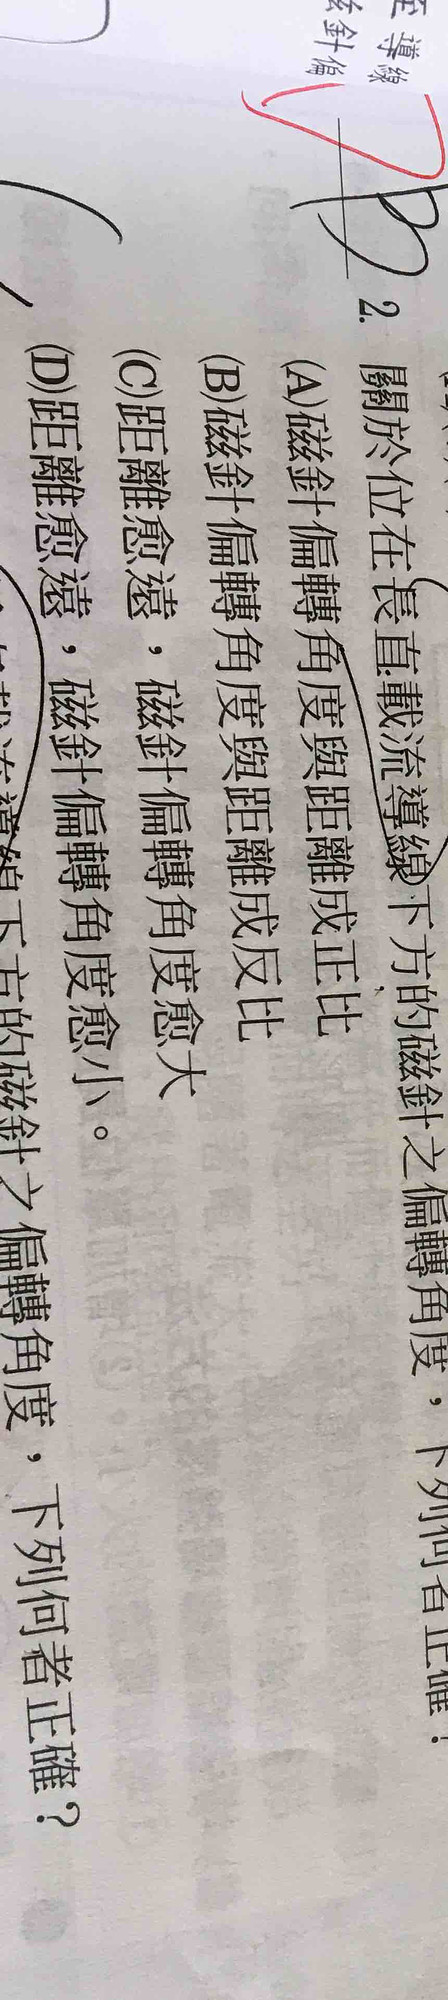 至 導線
磁針偏
D
2. 關於位在長直載流導線下方的磁針之偏轉角度，下列何者正確？
(A)磁針偏轉角度與距離成正比
(B)磁針偏轉角度與距離成反比
(C)距離愈遠，磁針偏轉角度愈大
(D)距離愈遠，磁針偏轉角度愈小。
載流導線下方的磁針之偏轉角度，下列何者正確？